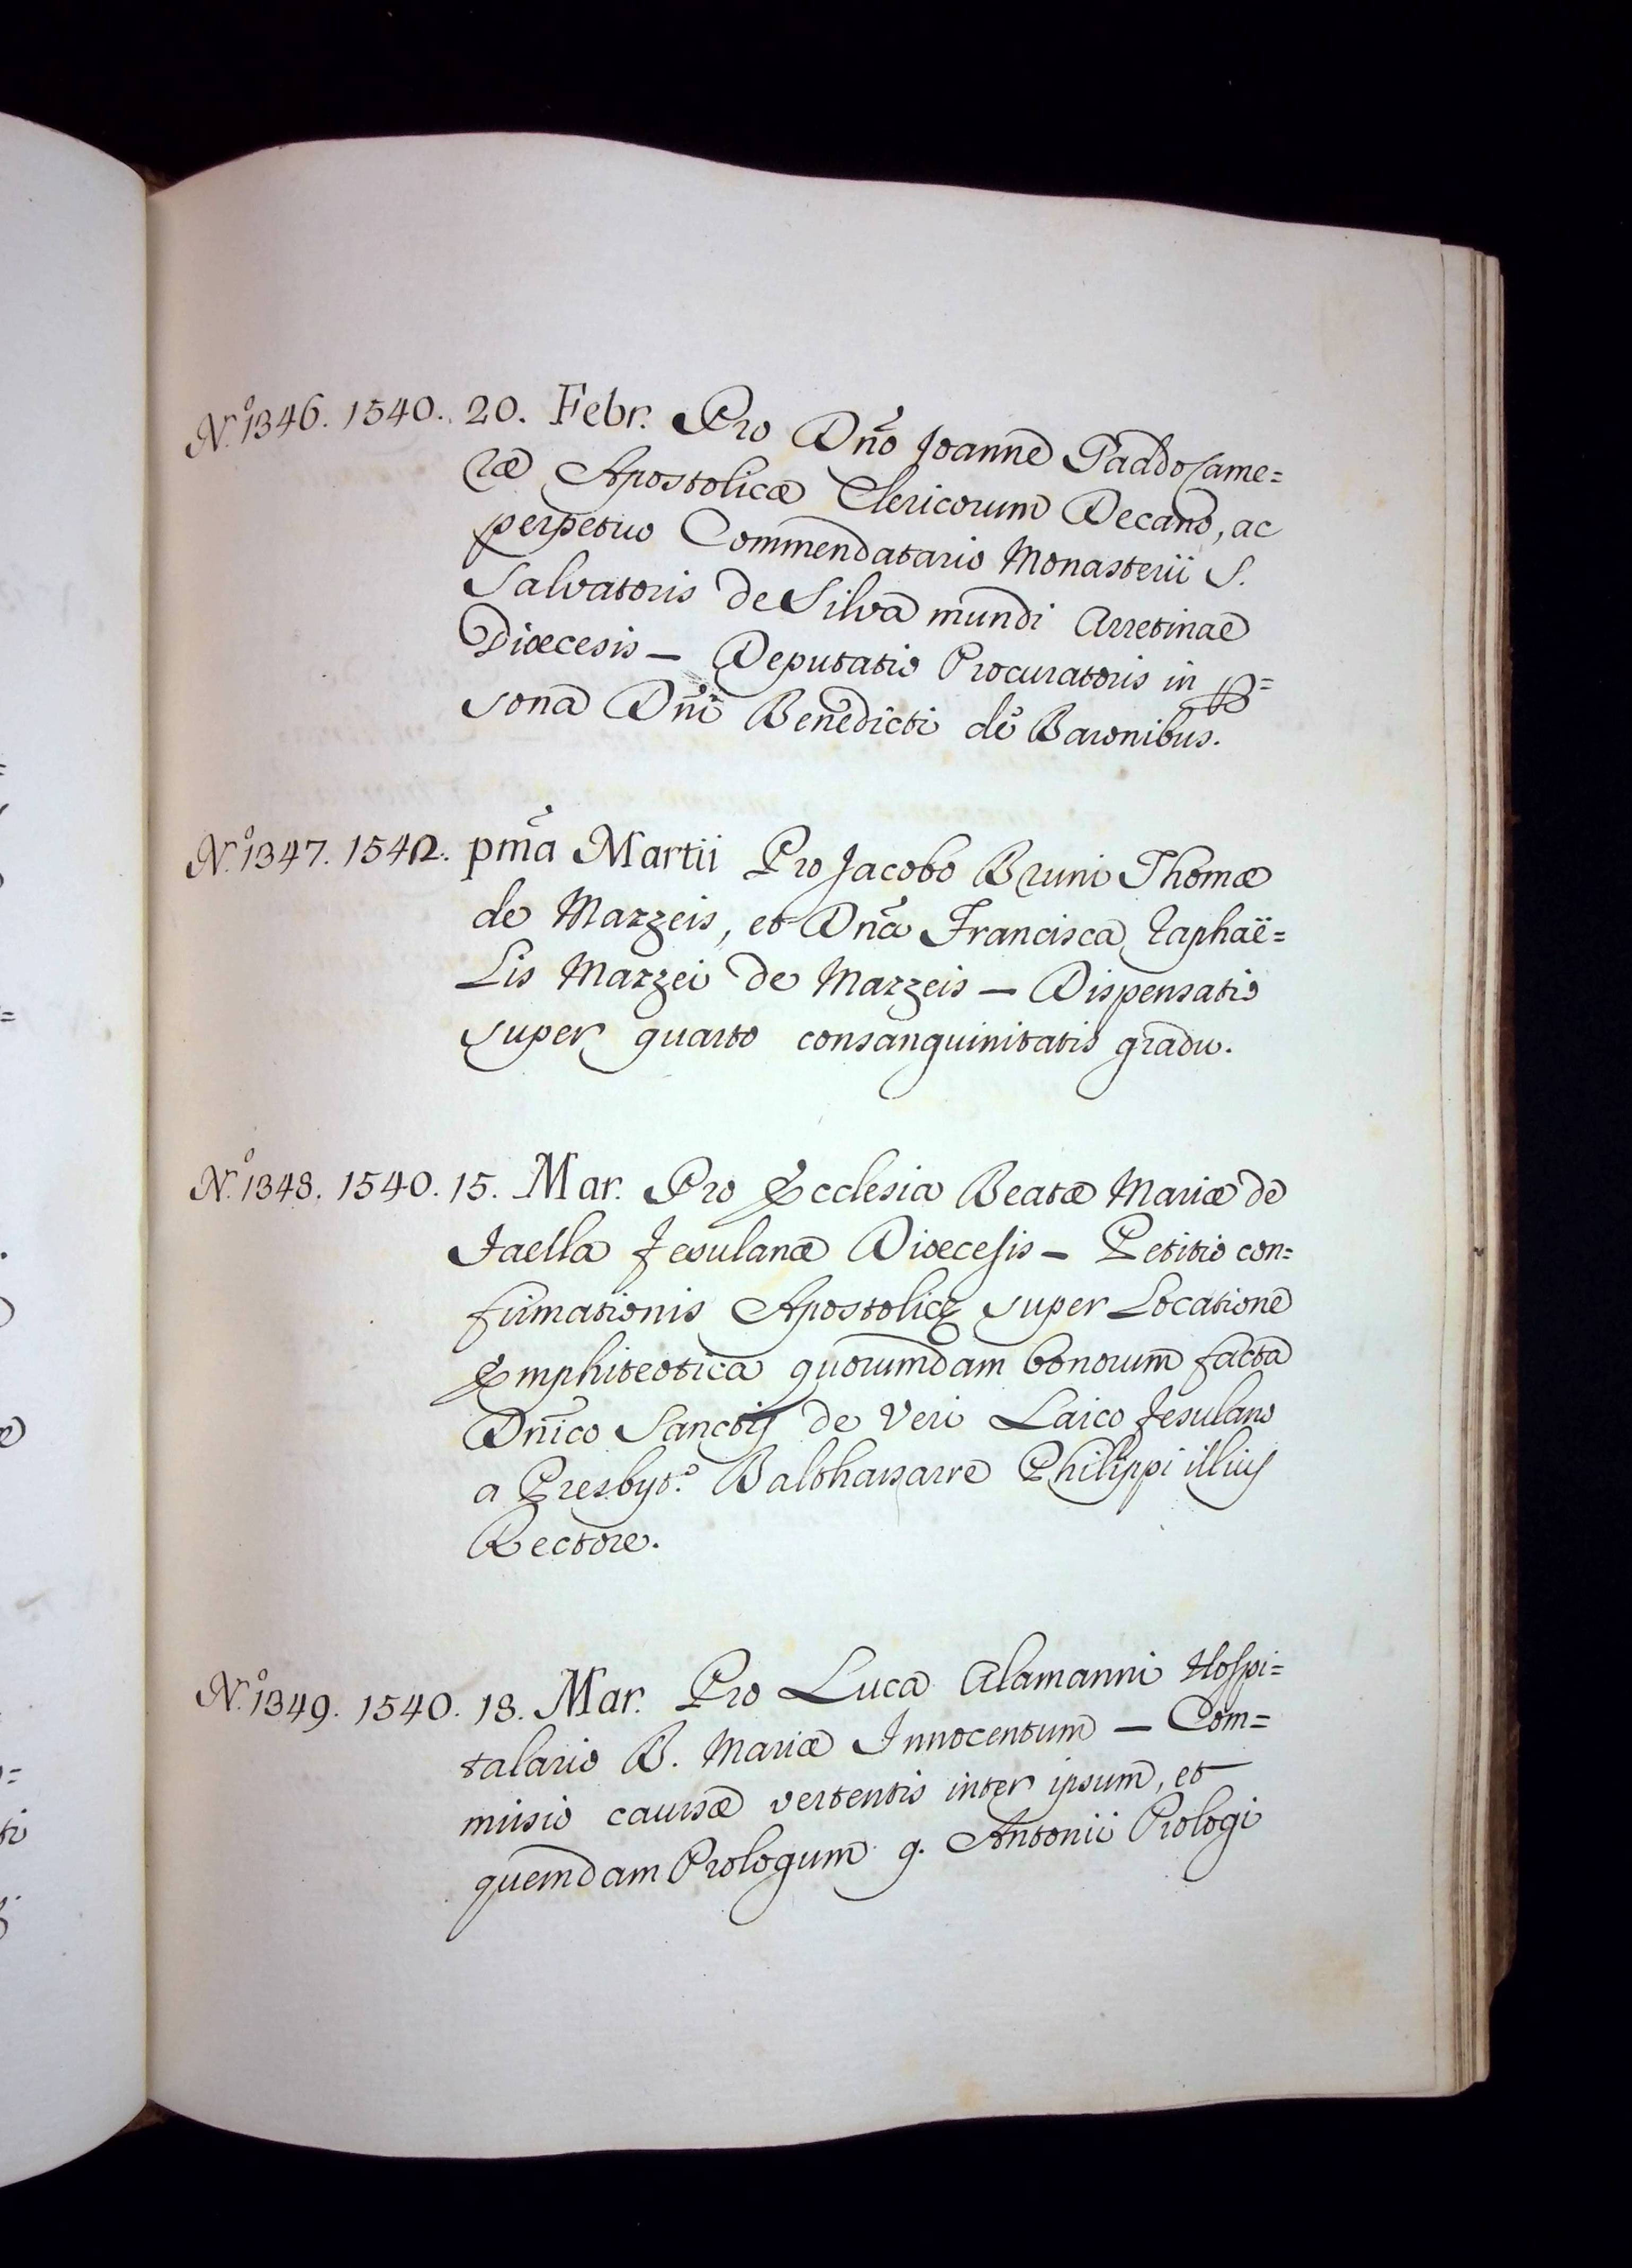 N.º 1346. 1540. 20. Febr. Pro Dño Joanne Gaddo Came=
ræ Apostolicæ Clericorum Decano, ac
perpetuo Commendatario Monasterii S.
Salvatoris de Silva mundi Arretinae
Diœcesis — Deputatio Procuratoris in per=
sona Dñi Benedicti de Baronibus.
N.º 1347. 1540. pm̃a Martii Pro Jacobo Bruni Thomæ
de Mazzeis, et Dña Francisca Raphaë=
lis Mazzei de Mazzeis — Dispensatio
super quarto consanguinitatis gradu.
N.º 1348. 1540. 15. Mar. Pro Ecclesia Beatæ Mariæ de
Faella Fesulanæ Diœcesis — Petitio con=
firmationis Apostolicę super Locatione
Emphiteotica quorumdam bonorum facta
Dñico Sanctis de Veri Laico Fesulano
a Presbyt.º Balthassarre Philippi illius
Rectore.
N.º 1349. 1540. 18. Mar. Pro Luca Alamanni Hospi=
talario B. Mariæ Innocentum — Com=
missio caussæ vertentis inter ipsum, et
quemdam Prologum q. Antonii Prologi